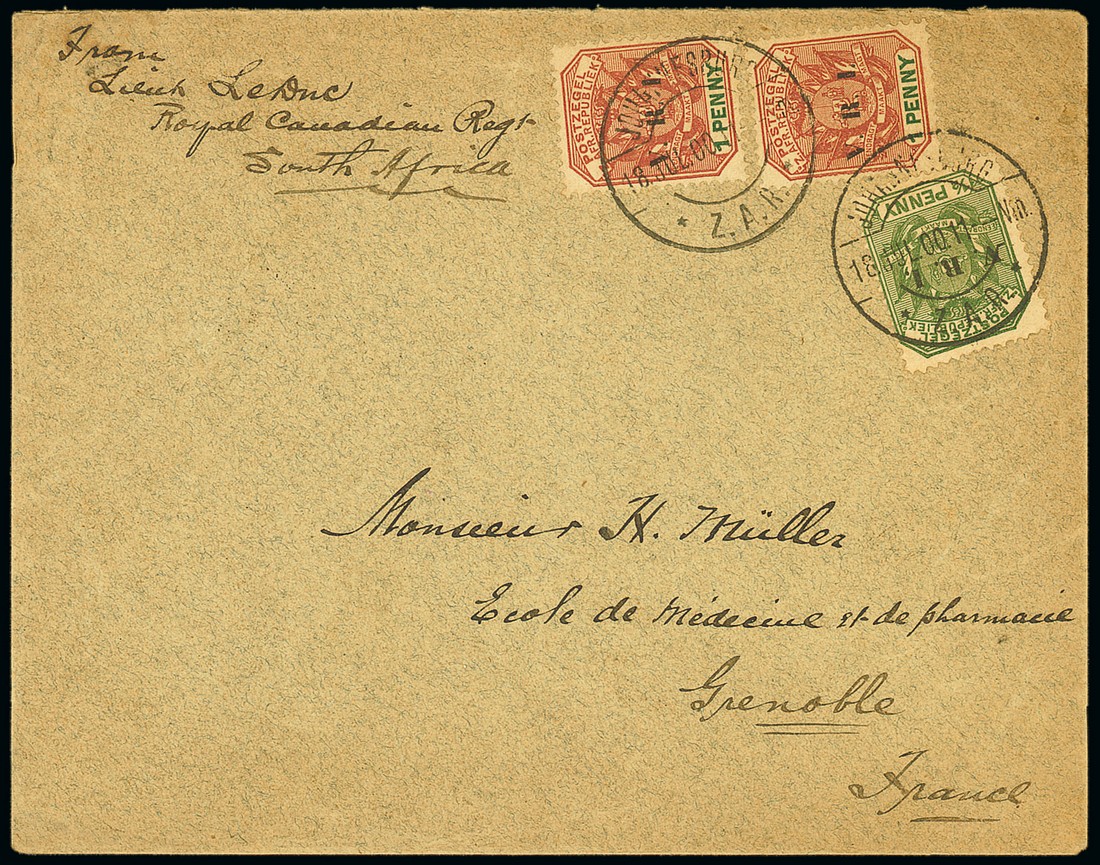 From
Lieut LeDuc
Royal Canadian Regt
South Africa
POSTZEGEL
Z. AFR. REPUBLIEK
V. R. I.
1 PENNY
JOHANNESBURG
18 JUL 00
* Z.A.R. *
POSTZEGEL
Z. AFR. REPUBLIEK
EENDRAGT MAAKT MAGT
V. R. I.
1 PENNY
JOHANNESBURG
18 JUL 00
* Z.A.R. *
½ PENNY
EENDRAGT MAAKT MAGT
V. R. I.
POSTZEGEL
Z. AFR. REPUBLIEK
Monsieur H. Müller
Ecole de Médecine et de pharmacie
Grenoble
France